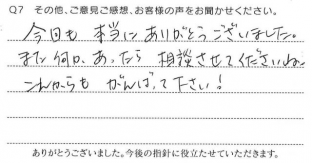 Q7 その他、ご意見ご感想、お客様の声をお聞かせください。
今回も 本当に ありがとうございました。
また何か、あったら 相談させてくださいね。
これからも がんばって下さい!
ありがとうございました。今後の指針に役立たせていただきます。